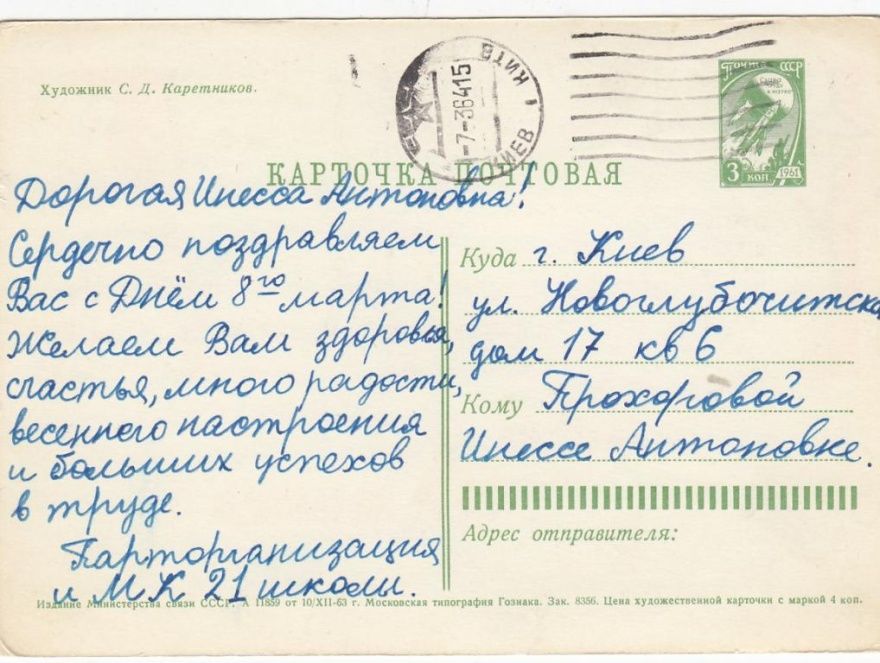 Художник С. Д. Каретников.
КИЇВ
-7-36415
КИЕВ
ПОЧТА СССР
3 КОП
1961
КАРТОЧКА ПОЧТОВАЯ
Дорогая Инесса Антоновна!
Сердечно поздравляем
Вас с Днём 8го марта!
Желаем Вам здоровья,
счастья, много радости,
весеннего настроения
и больших успехов
в труде.
Парторганизация
и МК 21 школы.
Куда г. Киев
ул. Новоглубочитска
дом 17 кв 6
Кому Прохоровой
Инессе Антоновне.
Адрес отправителя:
Издание Министерства связи СССР. А 11859 от 10/XII-63 г. Московская типография Гознака. Зак. 8356. Цена художественной карточки с маркой 4 коп.